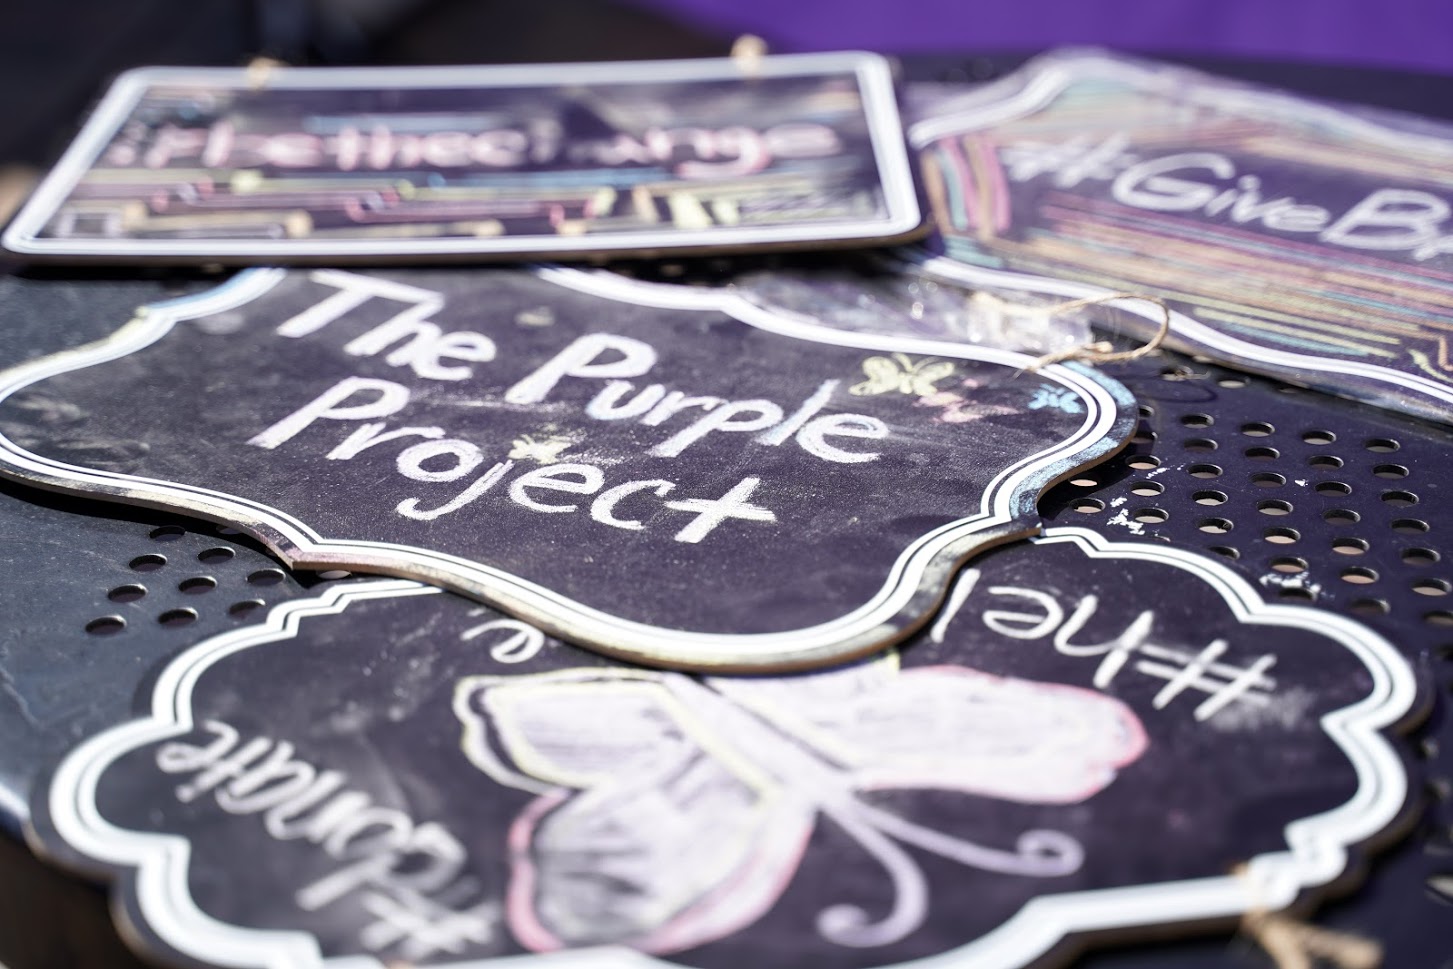 #bethechange
#GiveBa
The Purple
Project
#hel
e
#donate